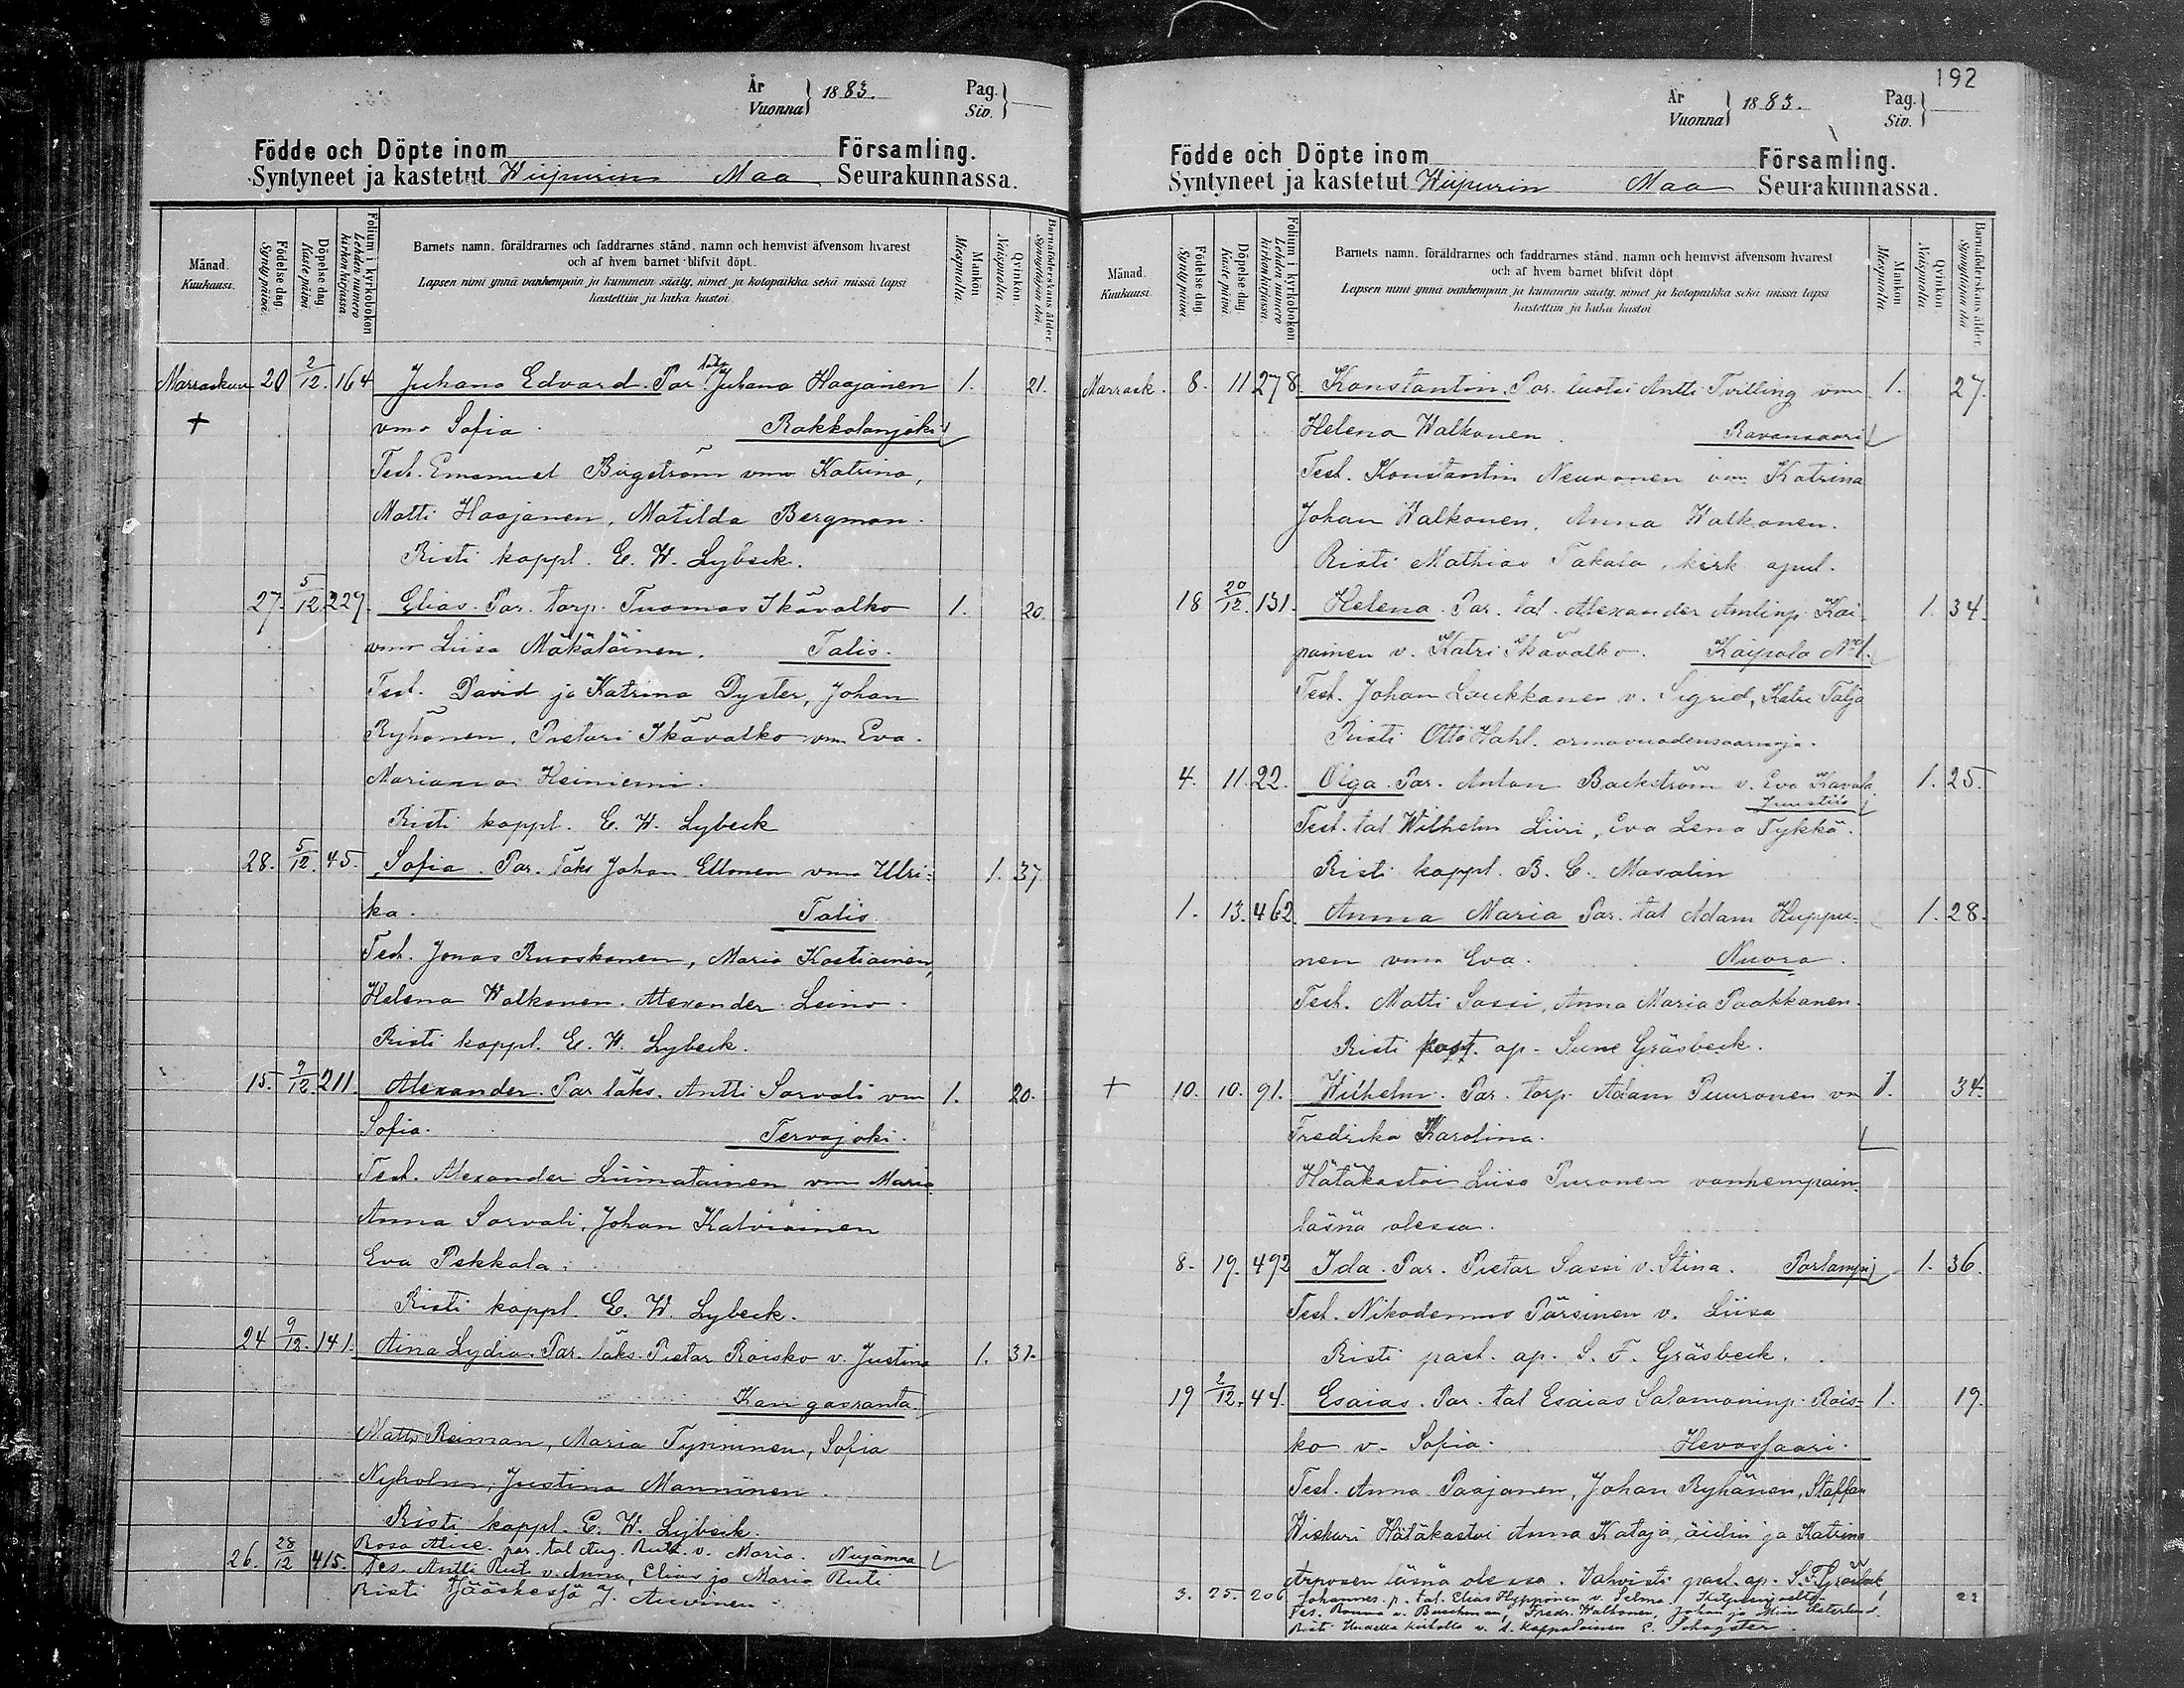 År
Vuonna } 1883.
Pag.
Siv. }
Födde och Döpte inom Församling.
Syntyneet ja kastetut Wiipurin Maa Seurakunnassa.
Månad.
Kuukausi.
Födelse dag.
Syntypäivä.
Döpelse dag
Kaste päivä.
Folium i kyrkoboken
Lehden numero
kirkon kirjassa.
Barnets namn, föräldrarnes och faddrarnes stånd, namn och hemvist äfvensom hvarest
och af hvem barnet blifvit döpt.
Lapsen nimi ynnä vanhempain ja kummein sääty, nimet ja kotopaikka sekä missä lapsi
kastettiin ja kuka kastoi
Mankön
Miespuolia.
Qvinkön
Naispuolia.
Barnaföderskans ålder
Synnyttäjän ikä.
Marraskuu 20 2/12. 164 Juhana Edvard. Par. Juhana Haajanen 1. 21.
+ vmo Sofia Rakkolanjoki
Test. Emanuel Birgström vmo Katrina,
Matti Haajanen, Matilda Bergman.
Risti kappl. E. W. Lybeck.
27. 5/12. 229. Elias. Par. torp. Tuomas Ikävalko 1. 20.
vmo Liisa Mäkäläinen. Talis.
Test. David ja Katrina Dyster, Johan
Ryhänen, Pietari Ikävalko vm Eva.
Marianna Heiniemi.
Risti kappl. E. W. Lybeck
28. 5/12. 45. Sofia. Par. läks Johan Ellonen vmo Ulri- 1. 37
ka. Talis
Test. Jonas Ruoskanen, Maria Kostiainen,
Helena Walkonen. Alexander Leino.
Risti kappl. E. W. Lybeck.
15. 9/12. 211. Alexander. Par läks. Antti Sorvali vm 1. 20.
Sofia. Tervajoki.
Test. Alexander Liimatainen vm Maria
Anna Sorvali, Johan Katviainen
Eva Pekkala.
Risti kappl. E. W. Lybeck.
24 9/12. 141. Aina Lydia. Par. läks. Pietar Roisko v. Justina 1. 31.
Kangasranta.
Matts Reiman, Maria Tynninen, Sofia
Nyholm, Justina Manninen.
Risti kappl. E. W. Lybeck.
26. 28/12 415. Rosa Alice. par. tal Aug. Ruti. v. Maria. Nuijamaa
tes. Antti Ruti v. Anna, Elias ja Maria Ruti
Risti Jääskessä J. Auvinen
192
År
Vuonna } 1883.
Pag.
Siv. }
Födde och Döpte inom Församling.
Syntyneet ja kastetut Wiipurin Maa Seurakunnassa.
Månad.
Kuukausi.
Födelse dag.
Syntypäivä.
Döpelse dag.
Kaste päivä.
Folium i kyrkoboken
Lehden numero
kirkon kirjassa.
Barnets namn, föräldrarnes och faddrarnes stånd, namn och hemvist äfvensom hvarest
och af hvem barnet blifvit döpt.
Lapsen nimi ynnä vanhempain ja kummein sääty, nimet ja kotopaikka sekä missä lapsi
kastettiin ja kuka kastoi
Mankön
Miespuolia.
Qvinkön
Naispuolia.
Barnaföderskans ålder
Synnyttäjän ikä
Marrask. 8. 11 278. Konstantin. Par. luotsi Antti Tvilling vm 1. 27.
Helena Walkonen. Ravansaari
Test. Konstantin Neuvonen vm Katrina
Johan Walkonen, Anna Walkonen.
Risti Mathias Takala, kirk. apul.
18 20/12. 131. Helena. Par. tal. Alexander Antinp. Kai- 1. 34.
painen v. Katri Ikävalko. Kaipola No 1.
Test. Johan Loukkanen v. Sigrid, Katri Talja
Risti Otto Hahl. armovuodensaarnaja.
4. 11. 22. Olga. Par. Anton Backström v. Eva Kavala. 1. 25.
Juustila
Test. tal Wilhelm Liiri, Eva Lena Tykkä.
Risti kappl. B. C. Masalin
1. 13. 462. Anna Maria Par. tal Adam Huppu- 1. 28.
nen vmo Eva. Nuora.
Test. Matti Sassi, Anna Maria Paakkanen.
Risti past. ap. Sune Gräsbeck.
+ 10. 10. 91. Wilhelm. Par. torp. Adam Puuronen vm 1. 34.
Fredrika Karolina.
Hätäkastoi Liisa Puronen vanhempain
läsnä olessa.
8. 19. 492 Ida. Par. Pietar Sassi v. Stina. Porlampi 1. 36.
Test. Nikodemus Pärsinen v. Liisa
Risti past. ap. S. F. Gräsbeck.
19 2/12. 44. Esaias. Par. tal Esaias Salomoninp. Rois- 1. 19.
ko v. Sofia. Hevossaari.
Test. Anna Paajanen, Johan Ryhänen, Staffan
Wiskari Hätäkastoi Anna Kataja, äidin ja Katrina
Arposen läsnä olessa. Vahvisti past. ap. S. F. Gräsbeck
3. 25. 206 Johannes. p. tal. Elias Hypponen v. Selma. 22
Tes. v. Buschman, Fredr. Walkonen, Johan ja Mina Österlund.
Risti